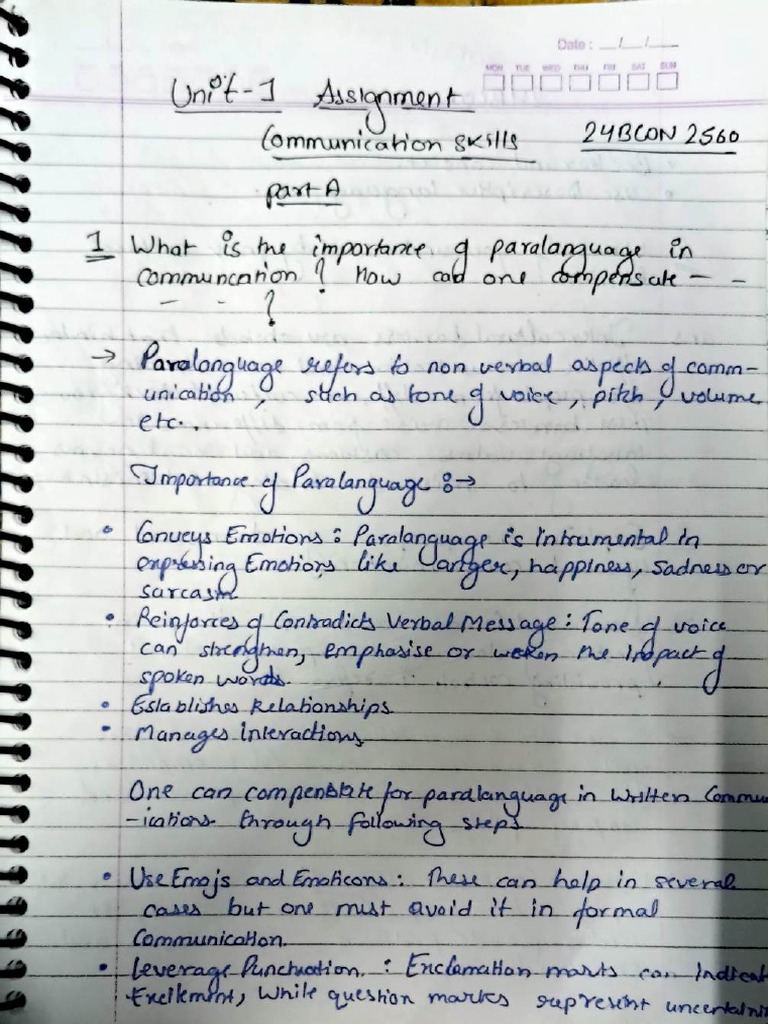 Date: __/__/__
MON TUE WED THU FRI SAT SUN
Unit-1 Assignment
Communication skills 24BCON2560
part A
1 What is the importance of paralanguage in
communcation? How can one compensate - -
- - - ?
→ Paralanguage refers to non verbal aspects of comm-
unication, such as tone of voice, pitch, volume
etc...
Importance of Paralanguage :→
• Conveys Emotions : Paralanguage is intrumental in
expressing Emotions like anger, happiness, sadness or
sarcasm
• Reinforces of Contradicts Verbal Message : Tone of voice
can strengthen, emphasise or weaken the impact of
spoken words.
• Establishes Relationships
• Manages interactions
One can compensate for paralanguage in written Commu
-ications through following steps
• Use Emojs and Emoticons : These can help in several
cases but one must avoid it in formal
Communication.
• Leverage Punctuation : Exclamation marks can indicat
Excitement, while question marks represent uncertaini